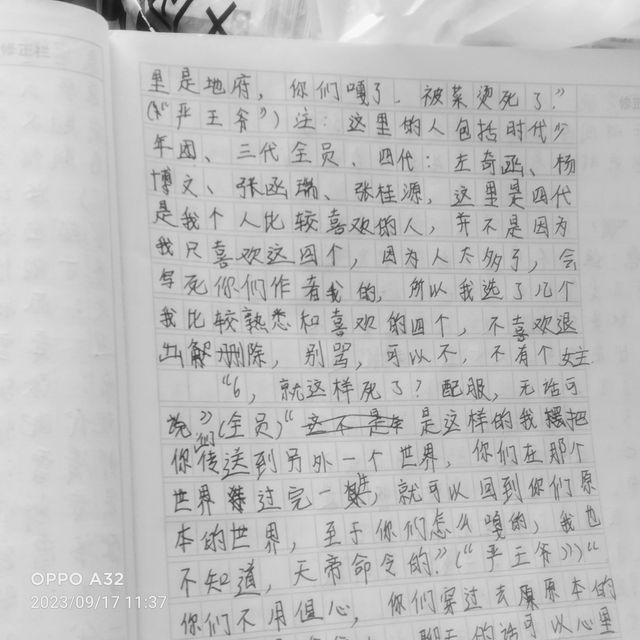 修正栏
里是地府，你们嘎了．被菜烫死了。”
（“严王爷”）注：这里的人包括时代少
年团、三代全员、四代：左奇函、杨
博文、张函瑞、张桂源，这里是四代
是我个人比较喜欢的人，并不是因为
我只喜欢这四个，因为人太多了，会
写死你们作者我的，所以我选了几个
我比较熟悉和喜欢的四个，不喜欢退
出解删除，别骂，可以不，不有个女主
“6，就这样死了？配服，无话可
说”（全员）“这不是 是这样的我摆把
们
你传送到另外一个世界，你们在那个
世界 过完一，就可以回到你们原
本的世界，至于你们怎么嘎的，我也
不知道，天帝命令的”（“严王爷”）“
你们不用但心，你们穿过去原原本的
聊天的许可以心里
OPPO A32
2023/09/17 11:37